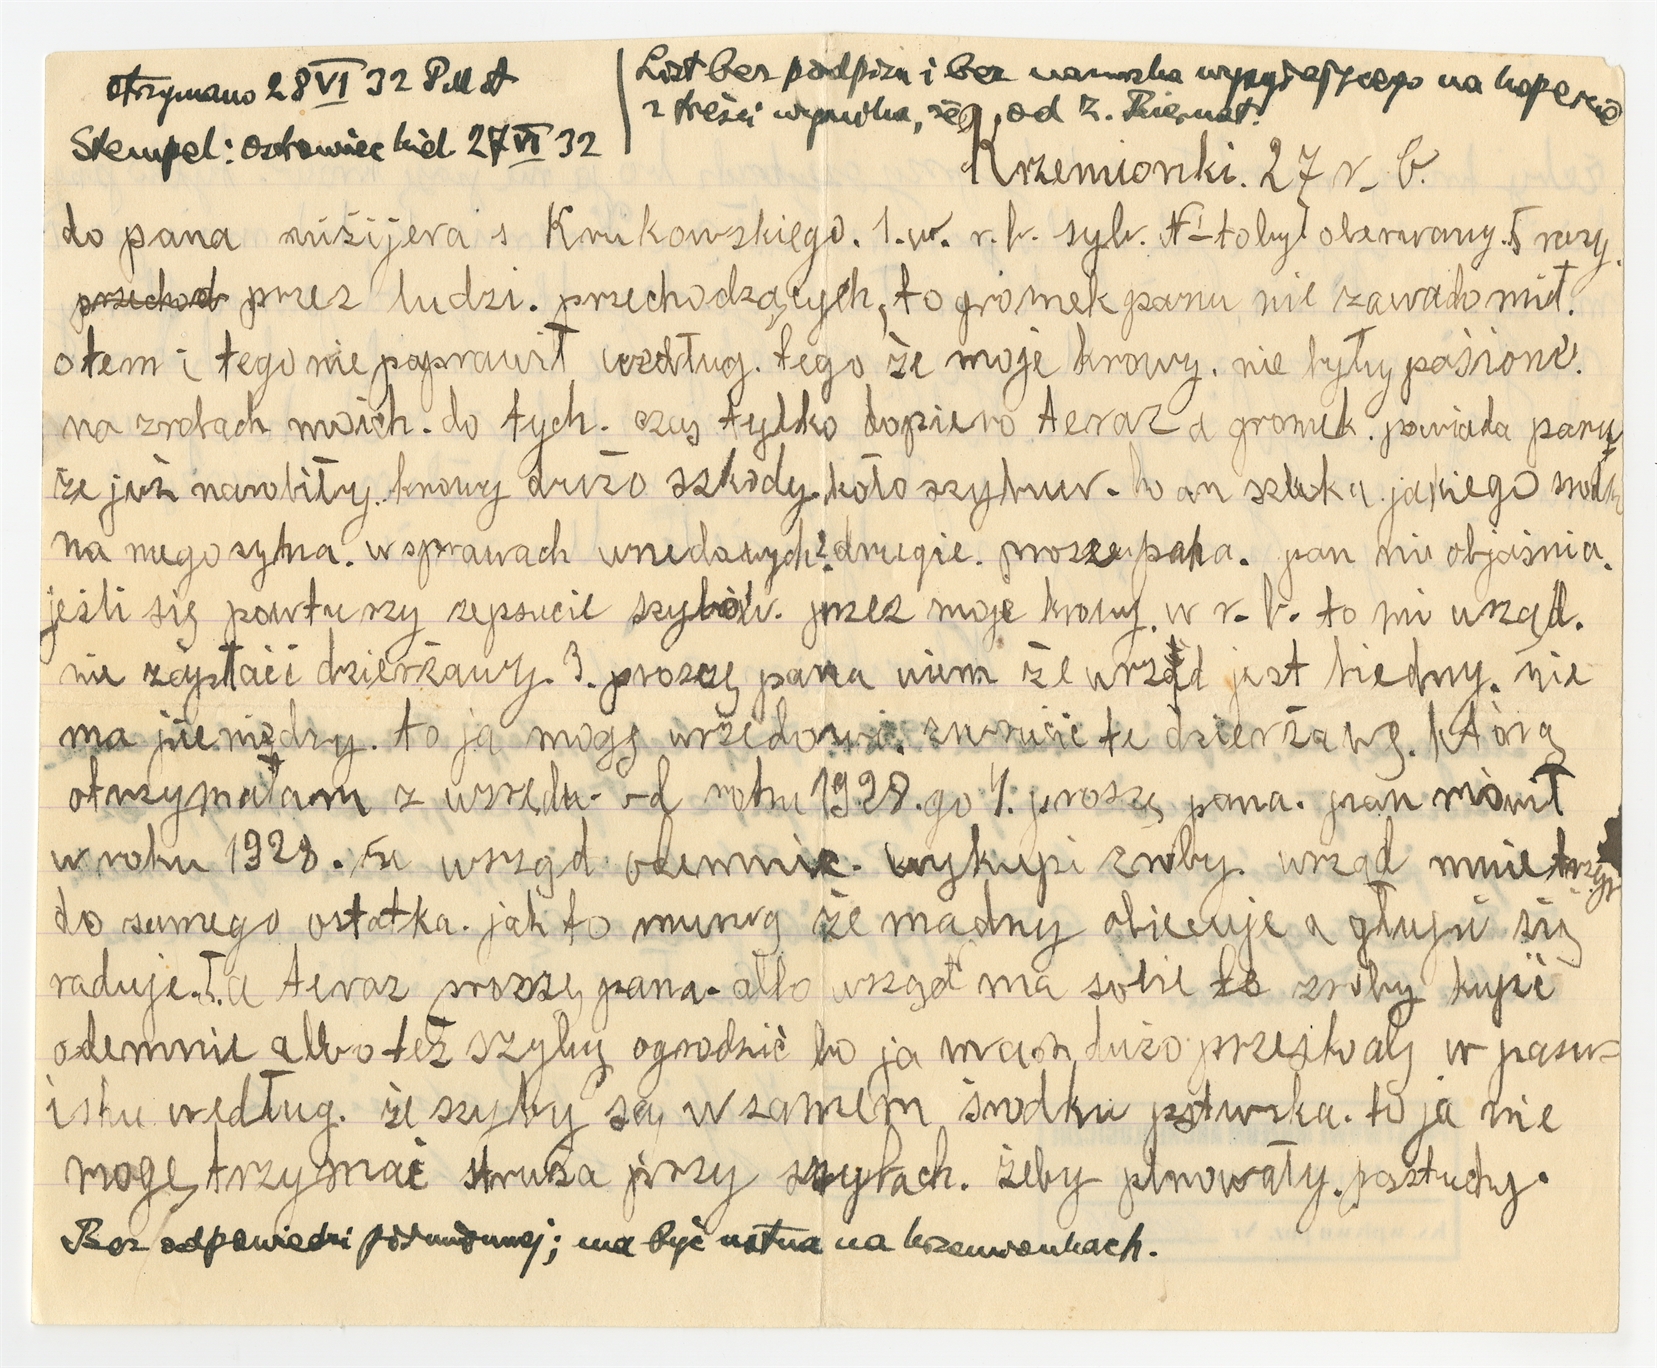 otrzymano 28 VI 32
Stempel: Ostrowiec kiel 27 VI 32
List bez podpisu i bez nazwiska wysyłającego na kopercie
z treści wynika, że od Z.
Krzemionki. 27 r. b.
do pana inżijera s Krukowskiego. 1. w. r. b. szyb. № 1 to był oberwany. 5 razy.
przechod przez ludzi. przechodzących, to gromek panu nie zawadomił.
o tem i tego nie poprawił według. tego że moje krowy. nie były pasione.
na zrobach moich. do tych. czas tylko dopiero teraz a gromek. powiada panu
że już narobiły. krowy dużo szkody. koło szybuw. bo on szuka. jakiego
na mego syna. w sprawach unedowych 2. drugie. prosze pana. pan mi objaśnia.
jeśli się powturzy zepsucie szybów. przez moje krowy. w r. b. to mi urząd.
nie zapłaci dzierżawy. 3. proszę pana wiem że urząd jest biedny. nie
ma pieniędzy. to ja mogę urzedowi. zwrucić te dzierżawę. którą
otrzymałam z urzędu od roku 1928. go 4. proszę pana. pan mówił
w roku 1928. że urząd odemnie. wykupi zroby. urząd mnie
do samego ostatka. jak to muwią że madry obiecuje a głupi się
raduje. 5. a teraz proszę pana. albo urząd ma sobie te zroby kupić
odemnie albo też szyby ogrodzić bo ja mam dużo przeskody w pastw-
isku według. że szyby są w samem środku pastwiska. to ja nie
moge trzymać struża przy szybach. żeby pilnowały. pastuchy.
Bez odpowiedzi pisemnej; ma być ustna na Krzemionkach.